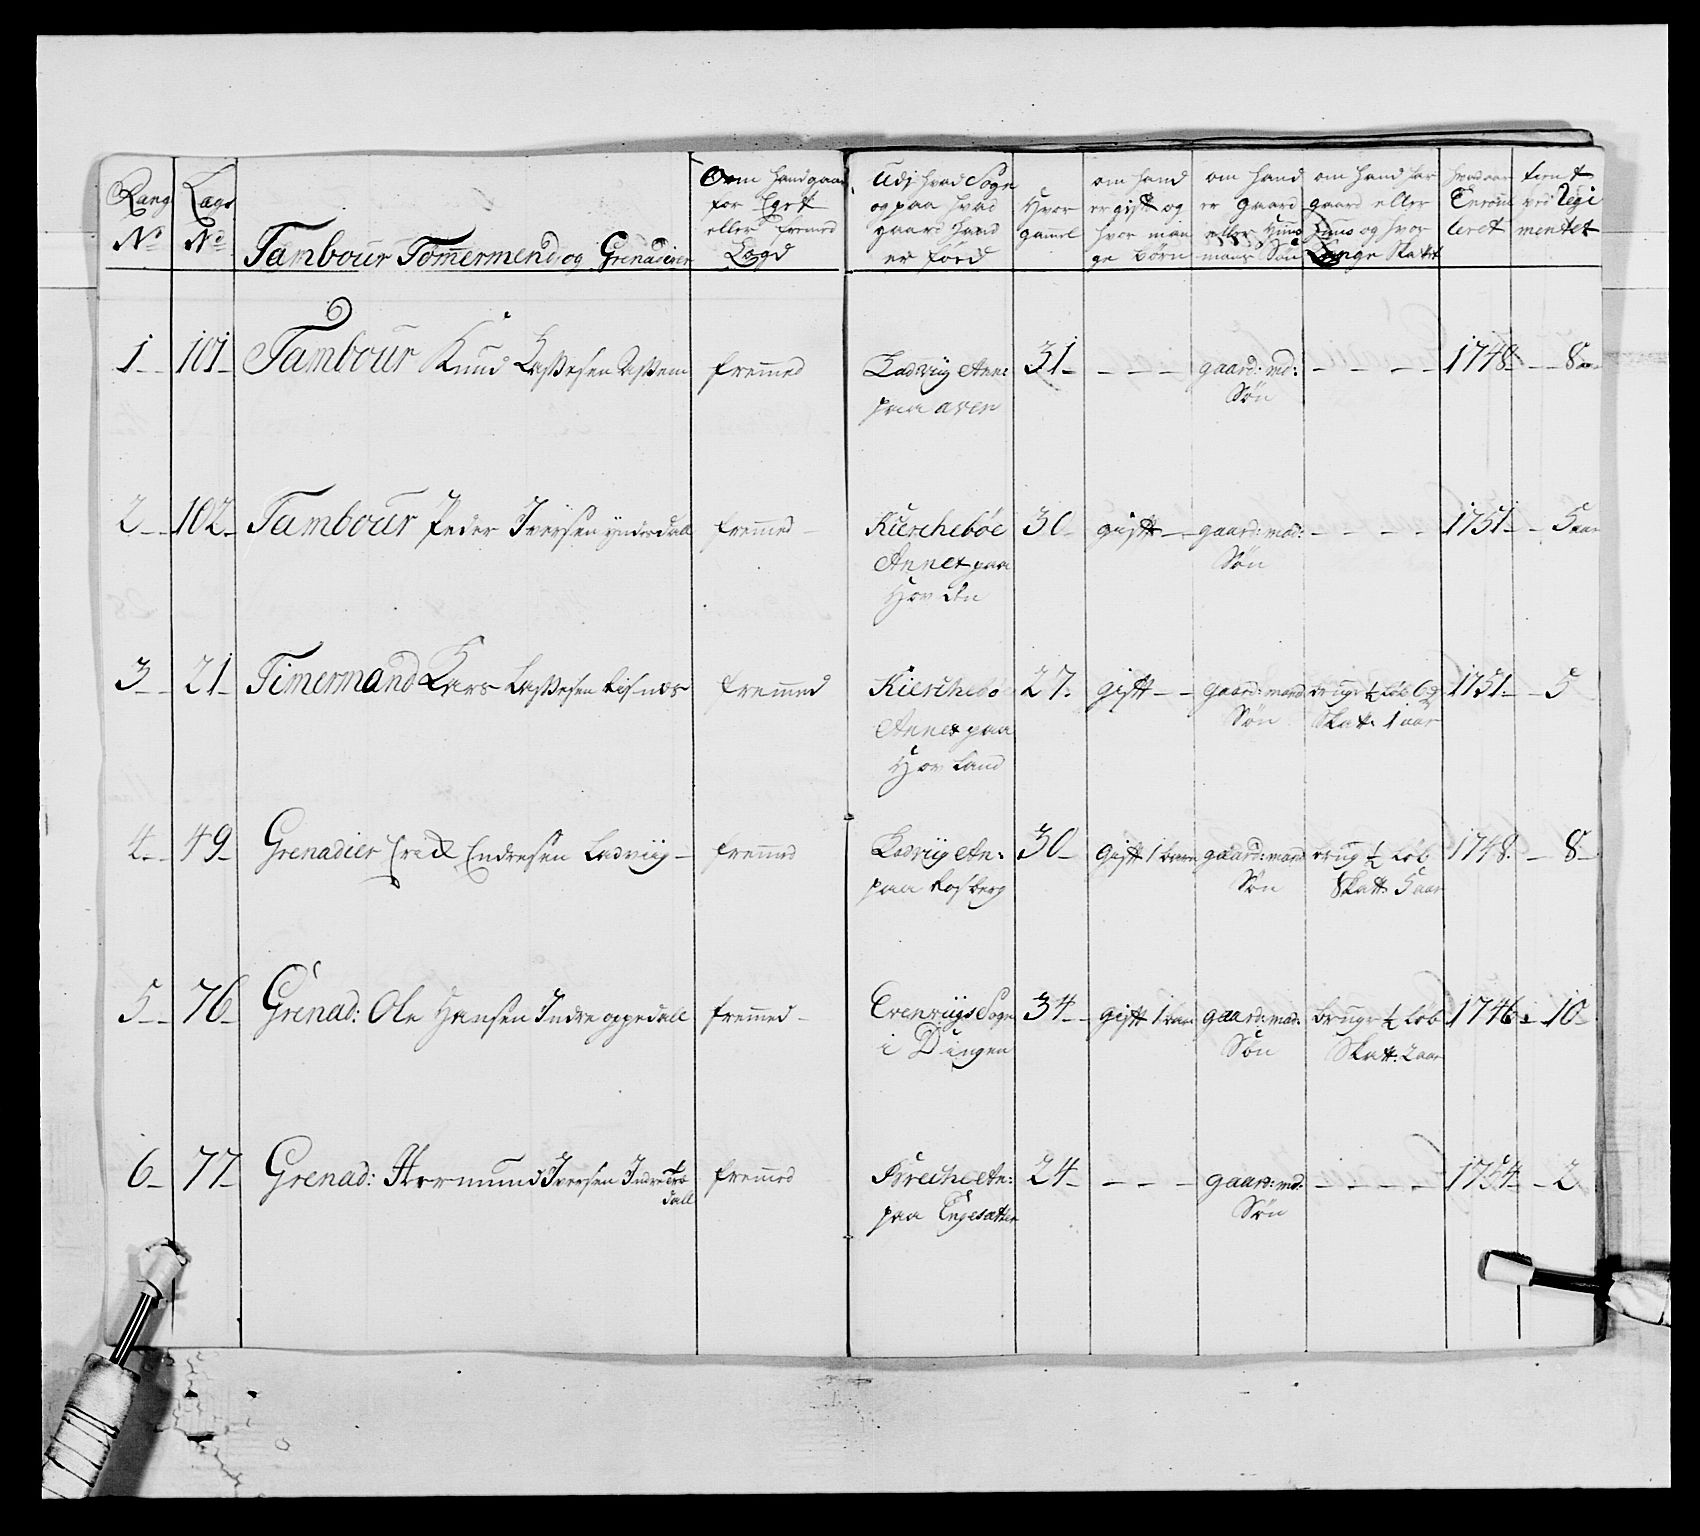 Rang No
Lægs No
Tambour Tømermend og Grenaderer
Om hand gaar for Eget eller fremed Lægd
Udj hvad Sogn og paa hvad gaard hand er fød
Hvor gamel
om hand er gift og hvor man ge børn
om hand er gaard eller Huus mans Søn
om hand har gaard eller Huus og hvor Længe Skatt
hvad aar Enroul leret
tient ved Regi mentet
1 101 Tambour Knud Lassesen fremmed Ladviig An: paa aven 31 gaard: md: Søn 1748 8 aar
2 102 Tambour Peder Iversen ynderdall fremmed Kierchebøe Annex paa Hov 30 gift gaard: mad: Søn 1751 5 aar
3 21 Timermand Lars Lassesen Risnæs fremmed Kierchebø Annex paa Hov Land 27 gift gaard: mand Søn bruge ½ Løb Og Skatt: 1 aar 1751 5
4 49 Grenadier Endresen Ladviig fremmed Ladviig An: paa Rosberg 30 gift 1 barn gaard: mand Søn brug ½ Løb Skatt: 5 aar 1748 8
5 76 Grenad: Ole Hansen Indre oppedall fremmed Evenviigs Sogn i Dingen 34 gift 1 barn gaard: mad: Søn bruge ½ Løb Skatt: 2 aar 1746 10
6 77 Grenad: Hermund Iversen Indre dall fremmed Brechee An: paa Engesætter 24 gaard: md: Søn 1754 2